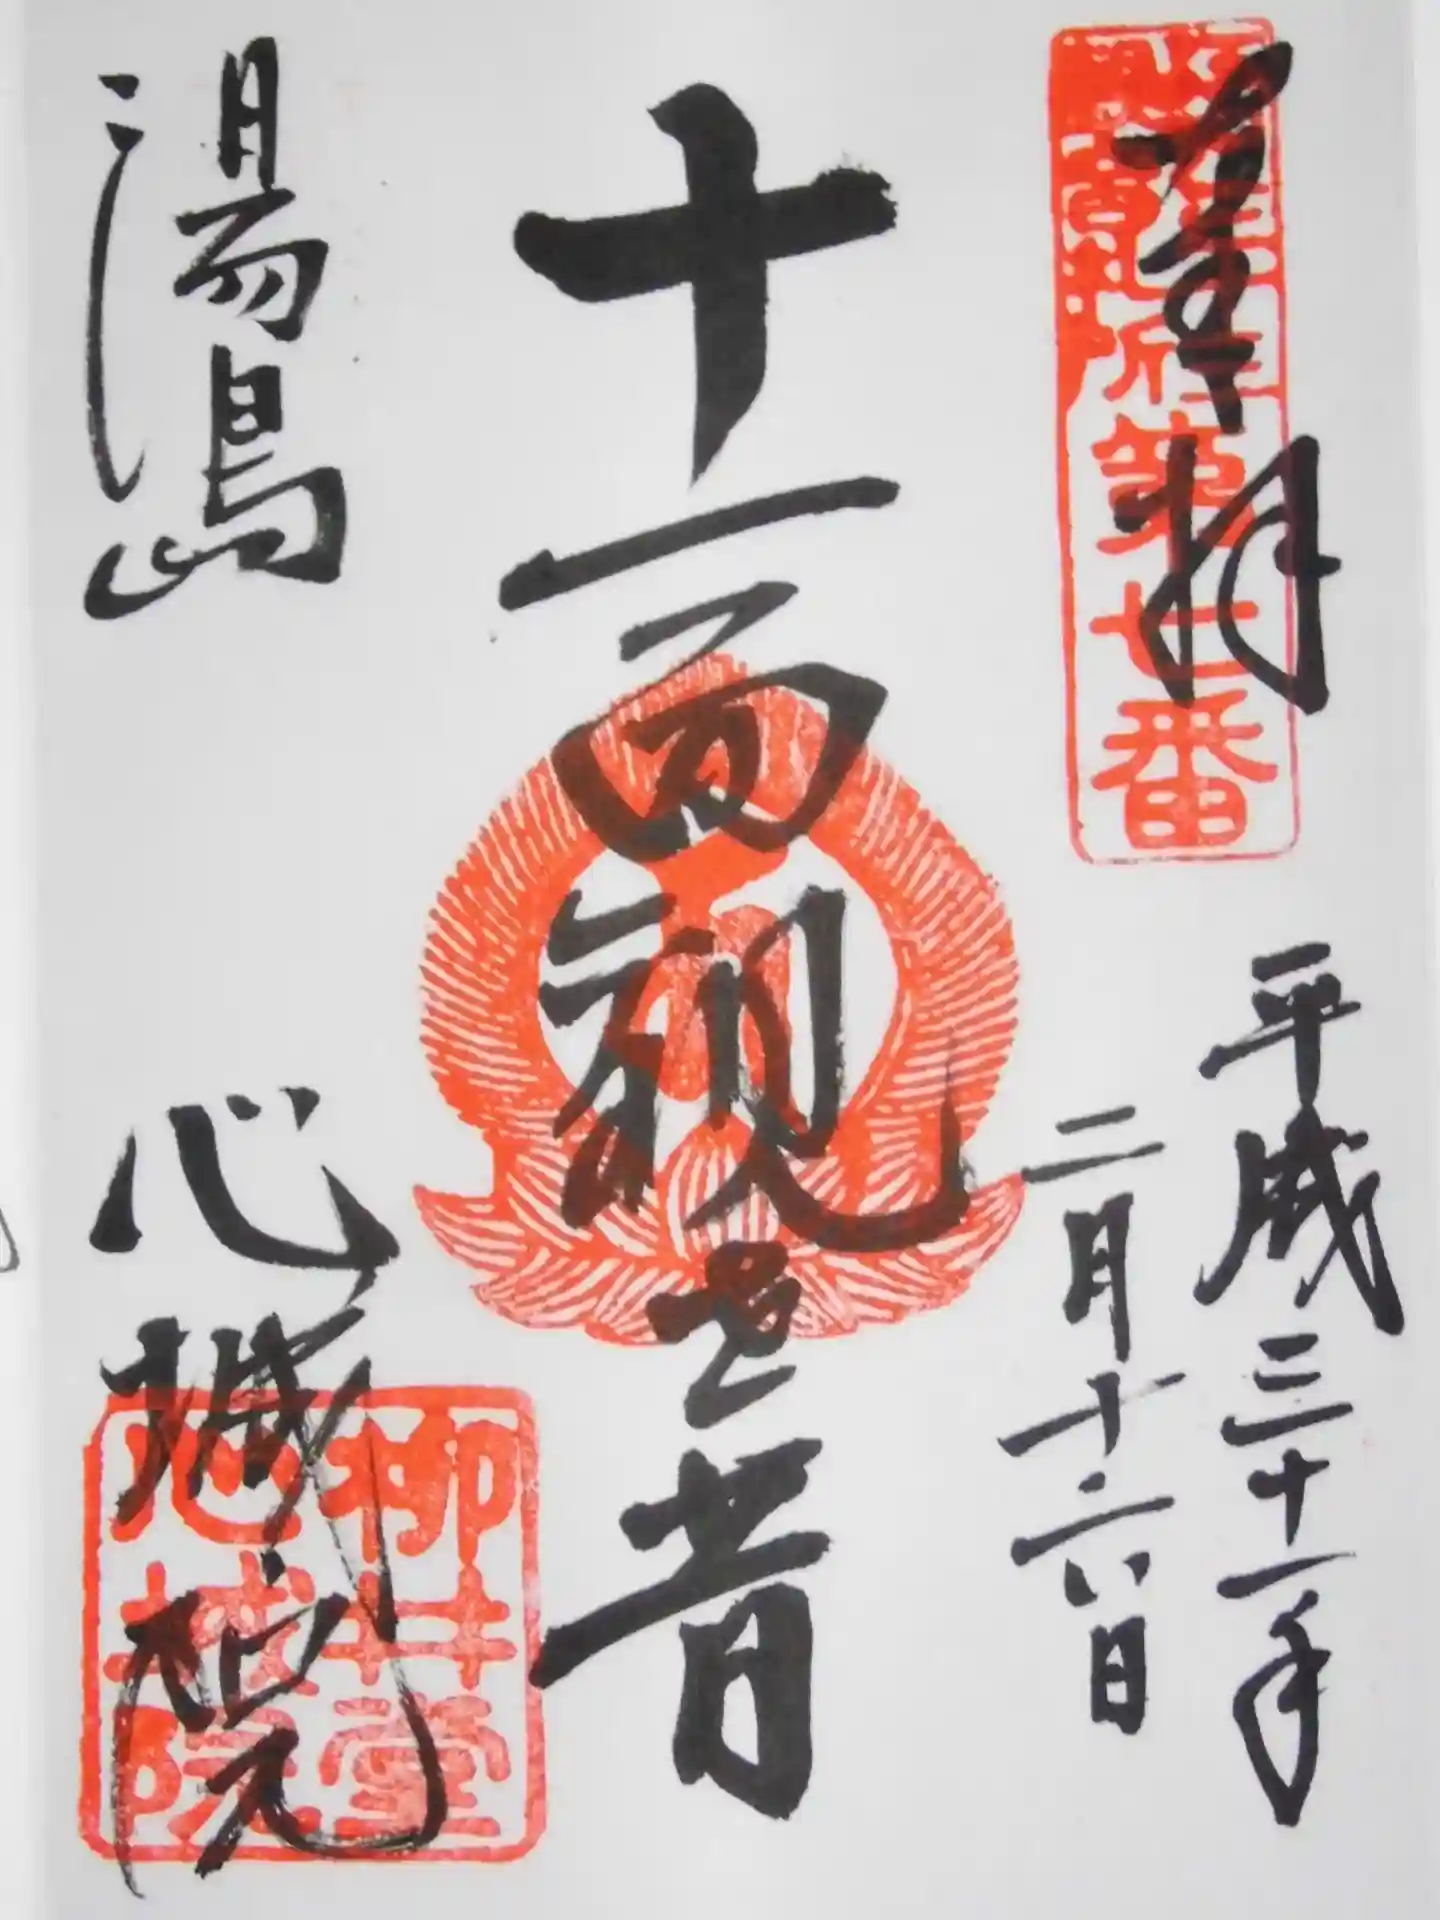 奉拝
第七番
平成三十一年
二月十六日
十一面観世音
湯島
心城院
柳井堂
心城院